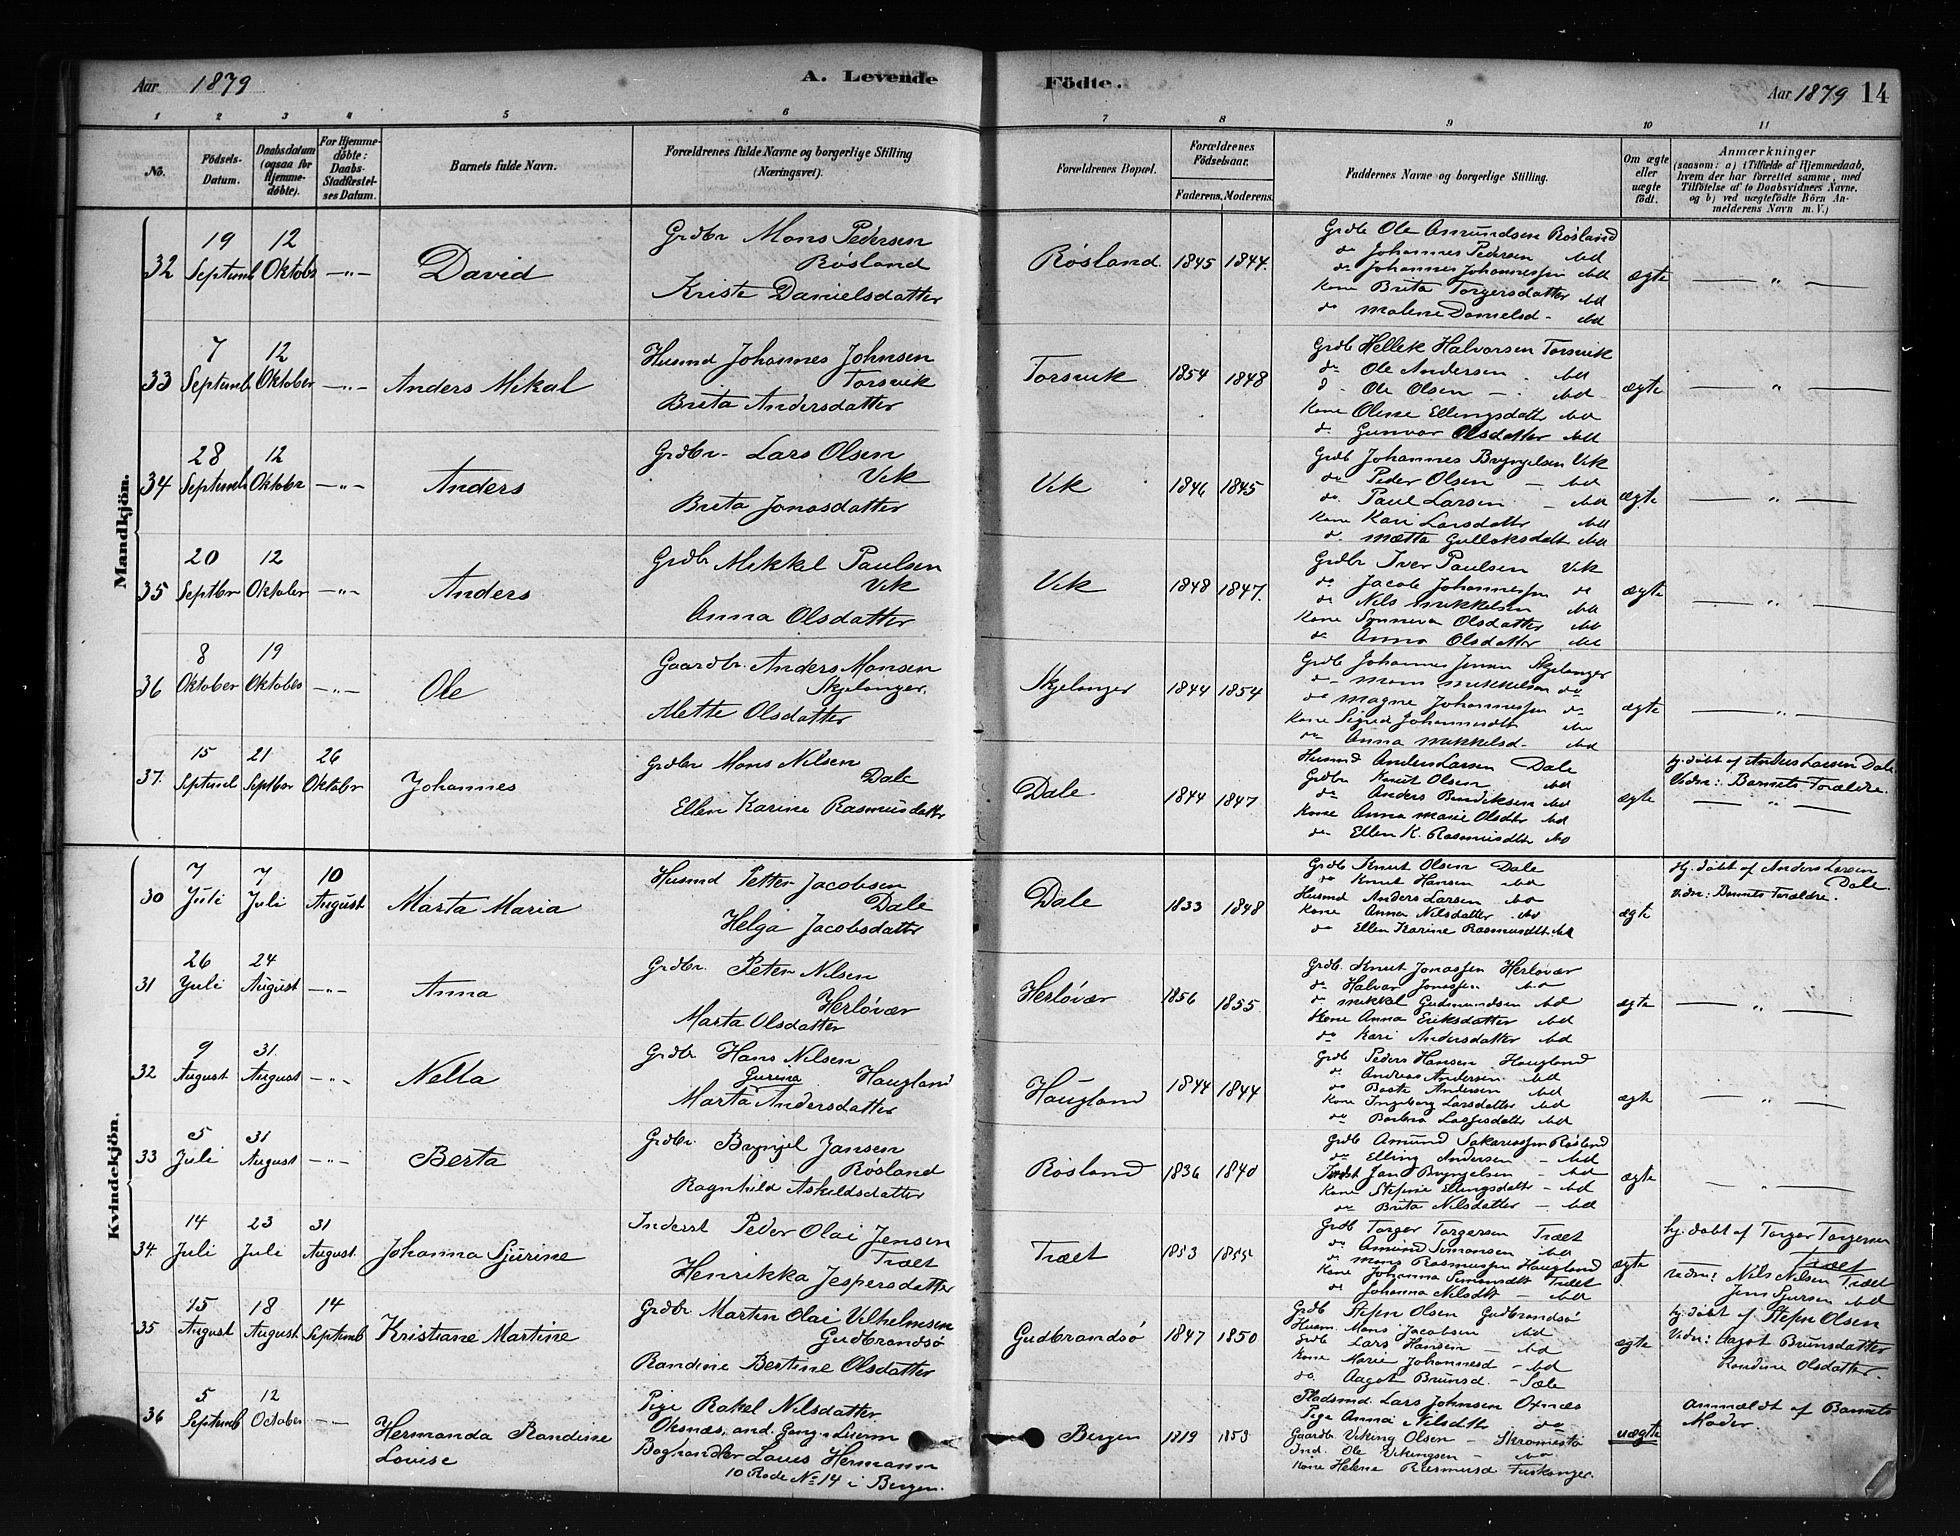 Aar 1879
A. Levende
Födte.
Aar 1879 14
1 2 3 4 5 6 7 8 9 10 11
No.
Födsels-Datum.
Daabsdatum (ogsaa for Hjemme-døbte).
For Hjemme-døbte: Daabs-Stadfæstel-ses Datum.
Barnets fulde Navn.
Forældrenes fulde Navne og borgerlige Stilling (Næringsvei).
Forældrenes Bopæl.
Forældrenes Födselsaar.
Faderens. Moderens.
Faddernes Navne og borgerlige Stilling.
Om ægte eller uægte født.
Anmærkninger
(saasom: a) i Tilfælde af Hjemmedaab,
hvem der har forrettet samme, med
Tilføielse af to Daabsvidners Navne.
og b) ved uægtefödte Börn An-
melderens Navn m. V.)
Mandkjön.
32
19 Septemb
12 Oktobr
—"—
David
Grdbr Mons Pedersen
Røsland
Kriste Danielsdatter
Røsland
1845
1844.
Grdb Ole Amundsen Røsland
do Johannes Pedersen ibd
do Johannes Johannessen ibd
Kone Brita Torgersdatter ibd
do Malene Danielsd - ibd
ægte
— " —
33
7 Septemb
12 Oktober
—"—
Anders Mikal
Husmd Johannes Johnsen
Torsvik
Brita Andersdatter
Torsvik
1854
1848
Grdb Hellek Halvorsen Torsvik
do Ole Andersen - ibd
d - Ole Olsen — ibd
Kone Oline Ellingsdatt ibd
do Gunvor Olsdatter ibd
ægte
— " —
34
28 Septemb
12 Oktobr
—"—
Anders
Grdbr - Lars Olsen
Vik
Brita Jonasdatter
Vik
1846
1845
Grdb Johannes Brynjelsen Vik
do Peder Olsen — ibd
do Paul Larsen — ibd
Kone Kari Larsdatter ibd
d. Mætta Gulleksdatt ibd
ægte
— " —
35
20 Septbr
12 Oktober
—"—
Anders
Grdb Mikkel Paulsen
Vik
Anna Olsdatter
Vik
1848
1847.
Grdbr Iver Paulsen Vik
do Jacob Johannessen do
do Nils Mikkelsen ibd
Kone Synneva Olsdatter ibd
do Anna Olsdatter ibd
ægte
— " —
36
8 Oktober
19 Oktober
—"—
Ole
Gaardbr. Anders Monsen
Skjelanger.
Mette Olsdatter
Skjelanger
1844
1854
Grdb Johannes Jensen Skjelanger
do Mons Mikkelsen do
do Magne Johannessen do
Kone Sigrid Johannesdt ibd
do Anna Mikkelsd - ibd
ægte
— " —
37.
15 Septemb
21 Septbr
26 Oktobr
Johannes
Grdbr Mons Nilsen
Dale
Ellen Karine Rasmusdatter
Dale
1844
1847
Husmd Anders Larsen Dale
Grdbr Knut Olsen ibd
do Anders Bendiksen ibd
Kone Anna Marie Olsdtr ibd
do Ellen K. Rasmusdtr ibd
ægte
hj. døbt af Anders Larsen Dale
Vidn: Barnets Forældre.
— " —
Kvindekjön.
30
7 Juli
7 Juli
10 August
Marta Maria
Husmd Petter Jacobsen
Dale
Helga Jacobsdatter
Dale
1833
1848
Grdb Knut Olsen Dale
do Knut Hansen ibd
Husmd Anders Larsen ibd
Kone Anna Nilsdatter ibd
do Ellen Karine Rasmusdtr ibd
ægte
Hj. døbt af Anders Larsen
Dale.
Vidn: Barnets Forældre.
31
26 Juli
24 August
—"—
Anna
Grdbr. Peter Nilsen
Herløvær
Marta Olsdatter
Herløvær
1856
1855
Grdb. Knut Jonassen Herløvær
do Halvor Jonassen ibd
d. Mikkel Gudmundsen ibd
Kone Anna Eriksdatter ibd
do Kari Andersdatter ibd
ægte
— " —
32
9 August
31. August
—"—
Nella
Grdbr Hans Nilsen
Haugland
Gurina
Marta Andersdatter
Haugland
1844
1844
Grdb Peders Hansen Haugland
do Andreas Andersen ibd
do Baste Andersen ibd
Kone Ingeborg Larsdatter ibd
do Barbra Lassesdatter ibd
ægte
— " —
33
5 Juli
31 August
—"—
Berta
Grdbr. Brynjel Jansen
Røsland
Ragnhild Askeldsdatter
Røsland
1836
1840
Grdb Amund Sakariassen Røsland
do Elling Andersen - ibd
Indst Jan Brynjelsen - ibd
Kone Stefine Ellingsdatt - ibd
do Brita Nilsdatter - ibd
ægte
— " —
34.
14 Juli
23 Juli
31 August.
Johanna Sjurine
Inderst Peder Olai Jensen
Træet
Henrikka Jespersdatter
Træet
1853
1855
Grdb Torger Torgersen Træet
do Amund Simonsen ibd
do Mons Rasmussen Haugland
Kone Johanna Simonsdt Træet
do Johanna Nilsdt — ibd
ægte
hj. døbt af Torger Torgersen
Træet
Vidn: Nils Nilsen Træet
Jens Sjursen ibd
35
15 August
18 August
14 Septemb
Kristiane Martine
Grdbr Martin Olai Vilhelmsen
Gudbrandsø
Randine Bertine Olsdatter
Gudbrandsø
1847
1850
Grdb Steffen Olsen Gudbrandsø
Husm. Mons Jacobsen ibd
Grdb Lars Hansen - ibd
Kone Marie Johannesd - ibd
do. Aagot Brunsd. - Sæle
ægte
hj. døbt af Steffen Olsen
Vidn: Aagot Brunsdatter
Randine Olsdatter.
36
5 Septemb
12 October
—"—
Hermanda Randine
Lovise
Pige Rakel Nilsdatter
Oksnæs, and. Gangs Leierm
Bogbinder Louis Hermann
10 Rode No 14 i Bergen.
Bergen
1819
1853
Pladsmd Lars Johnsen Oxnæs
Pige Anna Nilsdt do
Gaardb Viking Olsen - Skromesto
Ind. Ole Vikingsen - do
Kone Helene Rasmusd Tuskanger.
uægte
Anmældt af Barnets
Moder.